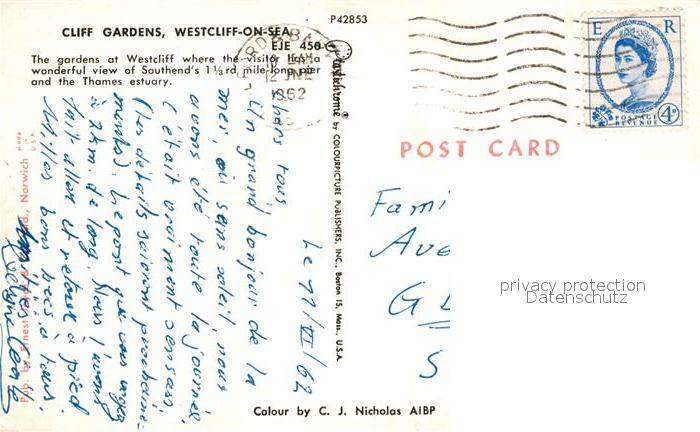 CLIFF GARDENS, WESTCLIFF-ON-SEA
EJE 450
The gardens at Westcliff where the visitor has a
wonderful view of Southend's 1⅓rd mile-long pier
and the Thames estuary.
P42853
12 JNE
1962
E R
POSTAGE
REVENUE
4D
POST CARD
Le 11/VI/62
Chers tous,
Un grand bonjour de la
mer, où sans soleil, nous
avons été toute la journée
C'était vraiment sensas,
(les détails suivront prochaine-
ments). Le pont que vous voyez
a 2 km. de long. Nous l'avons
fait aller et retour à pied
Milles bons baisers à tous,
Fami
Ave
G
S
Plastichrome® by COLOURPICTURE PUBLISHERS, INC., Boston 15, Mass., U.S.A.
Pub. by Ernest Ltd., Norwich MADE IN U.S.A.
Colour by C. J. Nicholas AIBP
privacy protection
Datenschutz